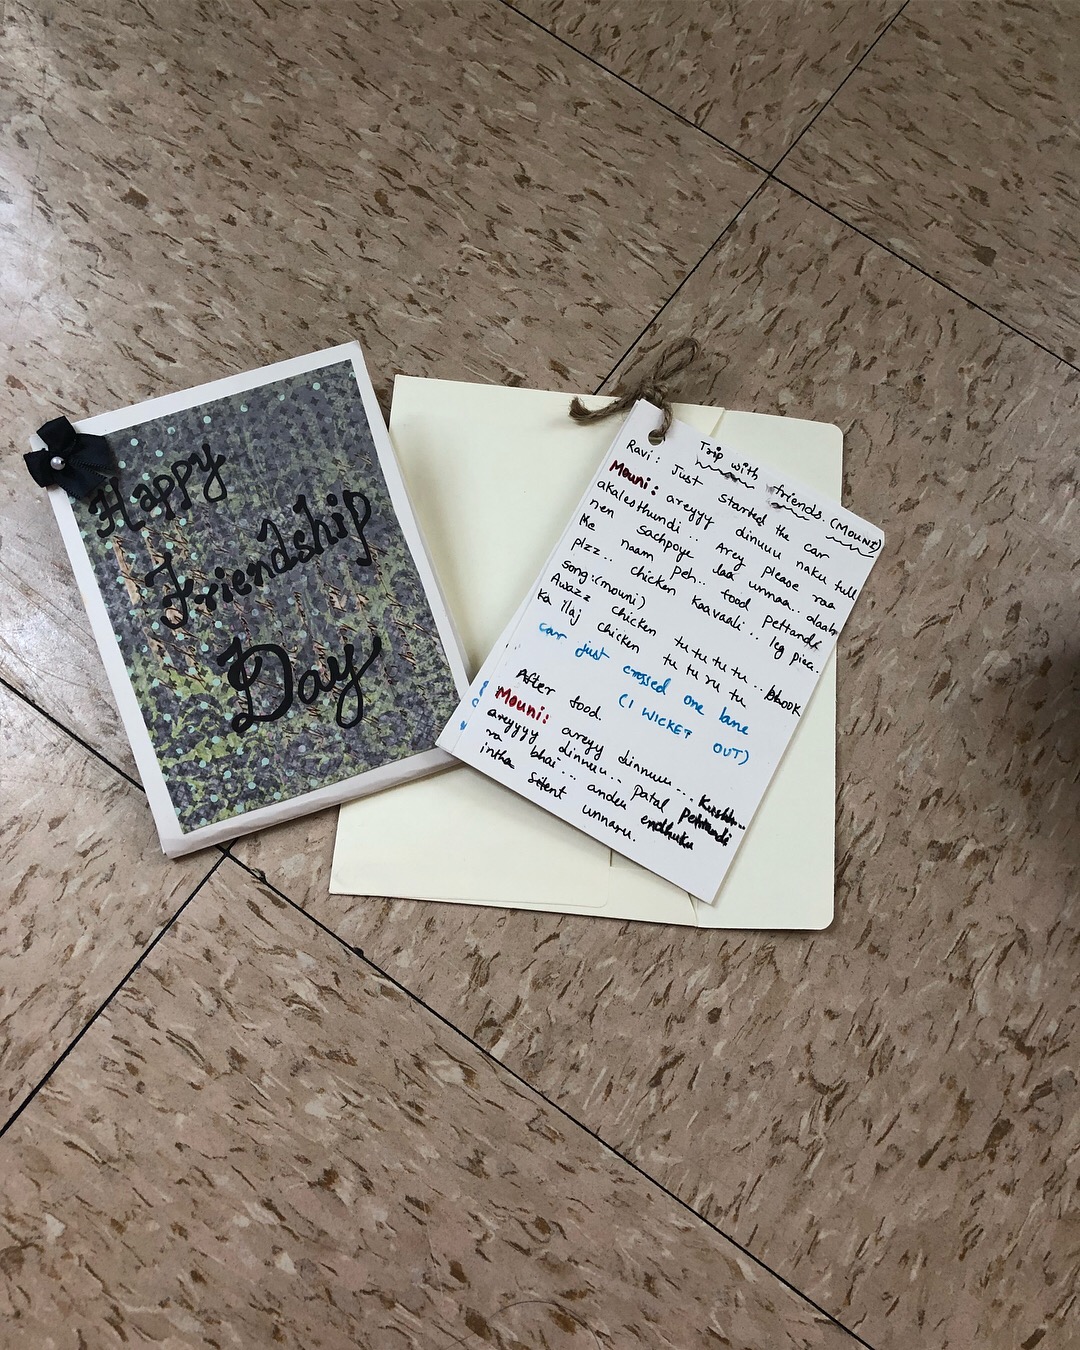 Happy
Friendship
Day
Trip with friends. (MOUNI)
Ravi: Just started the car
Mouni: areyyy dinuuu naku full
akalesthundi .. Arey please raa
nen sachpoye laa unnaa..
Me naam peh.. food pettandi
plzz.. chicken kaavaali .. leg piece.
song:(mouni)
Awazz chicken tu tu tu tu ... bhook
ka ilaj chicken tu tu ru tu
car just crossed one lane
(1 WICKET OUT)
After food.
Mouni: areyy dinnuuu ...
areyyyy dinnuu.. Patal pettandi
ra bhai... andeu endhuku
intha silent unnaru.